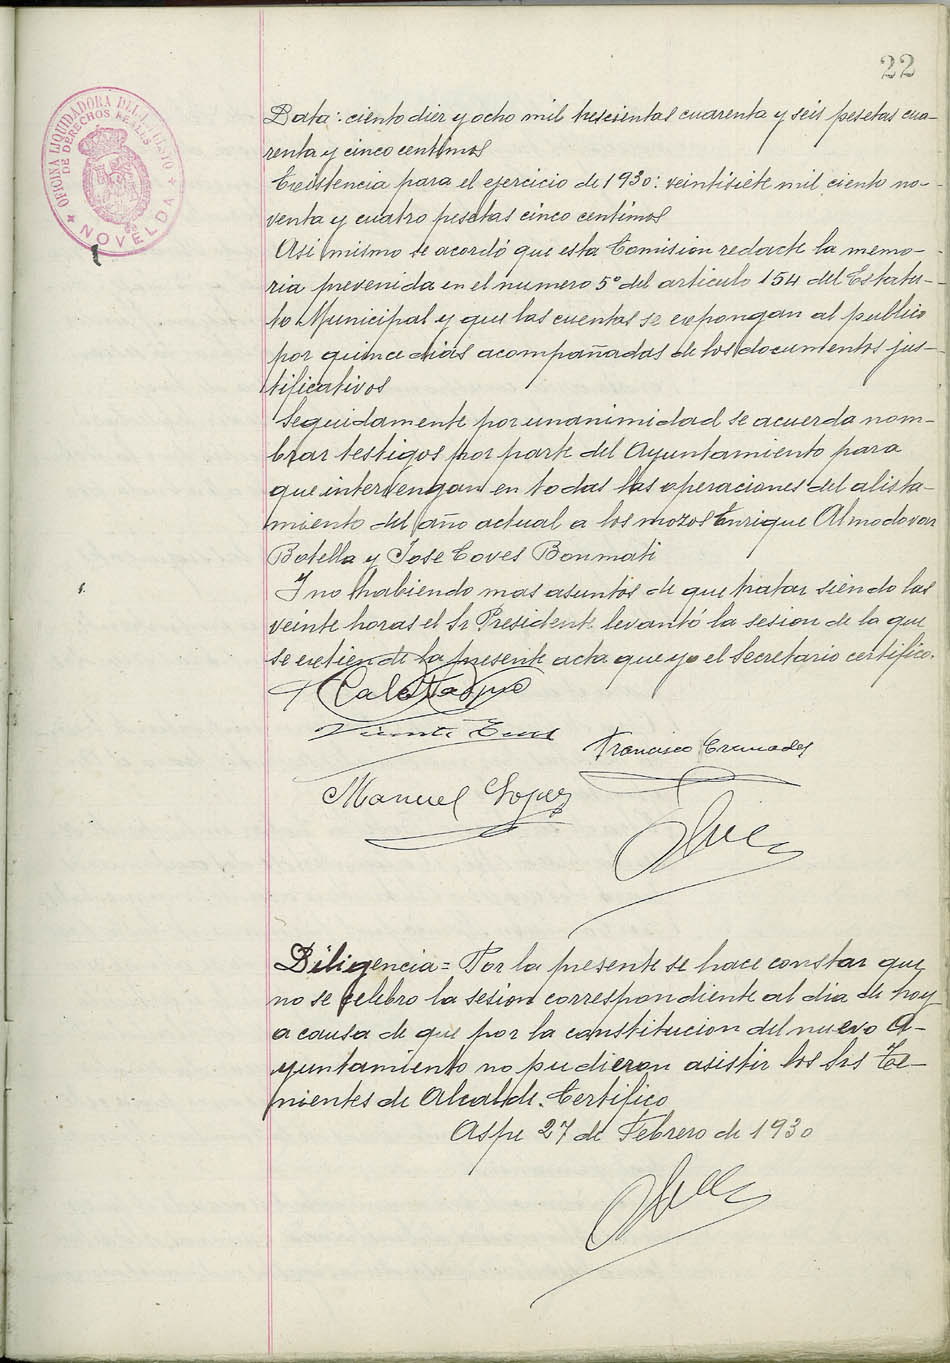 22
OFICINA LIQUIDADORA DEL IMPUESTO
DE DERECHOS REALES
NOVELDA
Data: ciento diez y ocho mil trescientas cuarenta y seis pesetas cua-
renta y cinco centimos
Existencia para el ejercicio de 1930: veintisiete mil ciento no-
venta y cuatro pesetas cinco centimos
Asi mismo se acordó que esta Comision redacte la memo-
ria prevenida en el numero 5º del articulo 154 del Estatu-
to Municipal y que las cuentas se expongan al publico
por quince dias acompañadas de los documentos jus-
tificativos
Seguidamente por unanimidad se acuerda nom-
brar testigos por parte del Ayuntamiento para
que intervengan en todas las operaciones del alista-
miento del año actual a los mozos Enrique Almodovar
Botella y Jose Coves Bonmati
Y no habiendo mas asuntos de que tratar siendo las
veinte horas el Sr Presidente levantó la sesion de la que
se extiende la presente acta que yo el Secretario certifico.
Calatayud
Vicente
Francisco Cremades
Manuel Lopez
Diligencia = Por la presente se hace constar que
no se celebro la sesion correspondiente al dia de hoy
a causa de que por la constitucion del nuevo A-
yuntamiento no pudieron asistir los Srs Te-
nientes de Alcalde. Certifico
Aspe 27 de Febrero de 1930